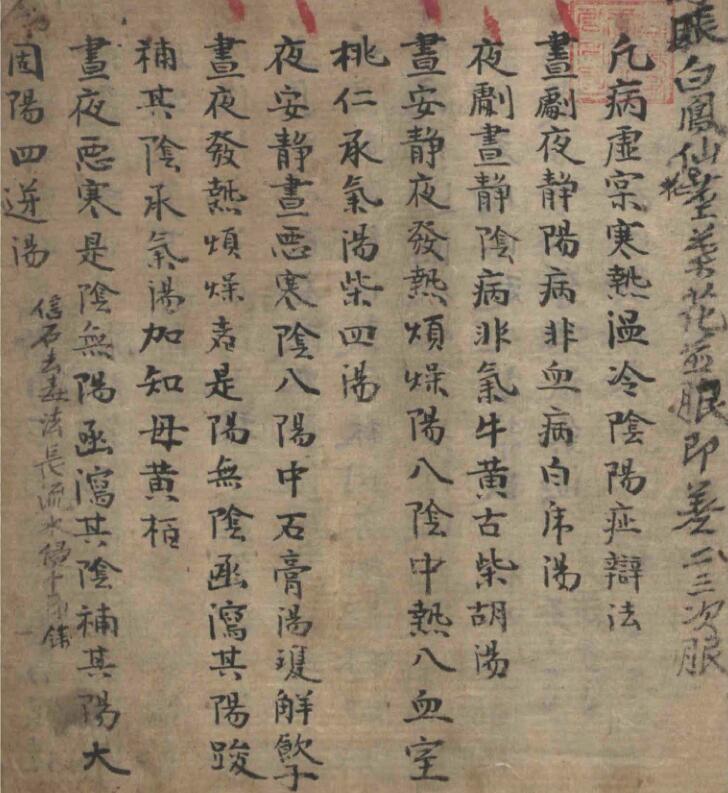 脹白鳳仙花根葉花並服即差二三次服
凡病虛寔寒熱溫冷陰陽症辯法
晝劇夜静陽病非血病白虎湯
夜劇晝静陰病非氣牛黃古柴胡湯
晝安静夜發熱煩燥陽入陰中熱入血室
桃仁承氣湯柴四湯
夜安静晝惡寒陰入陽中石膏湯瓊解飲子
晝夜發熱煩燥者是陽無陰亟瀉其陽踆
補其陰承氣湯加知母黃栢
晝夜惡寒是陰無陽亟瀉其陰補其陽大
固陽四逆湯
信石去毒法長流水